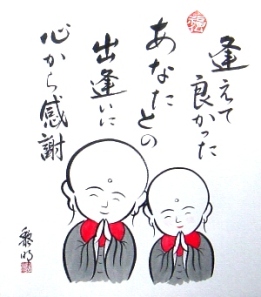 逢えて
良かった
あなたとの
出逢いに
心から感謝